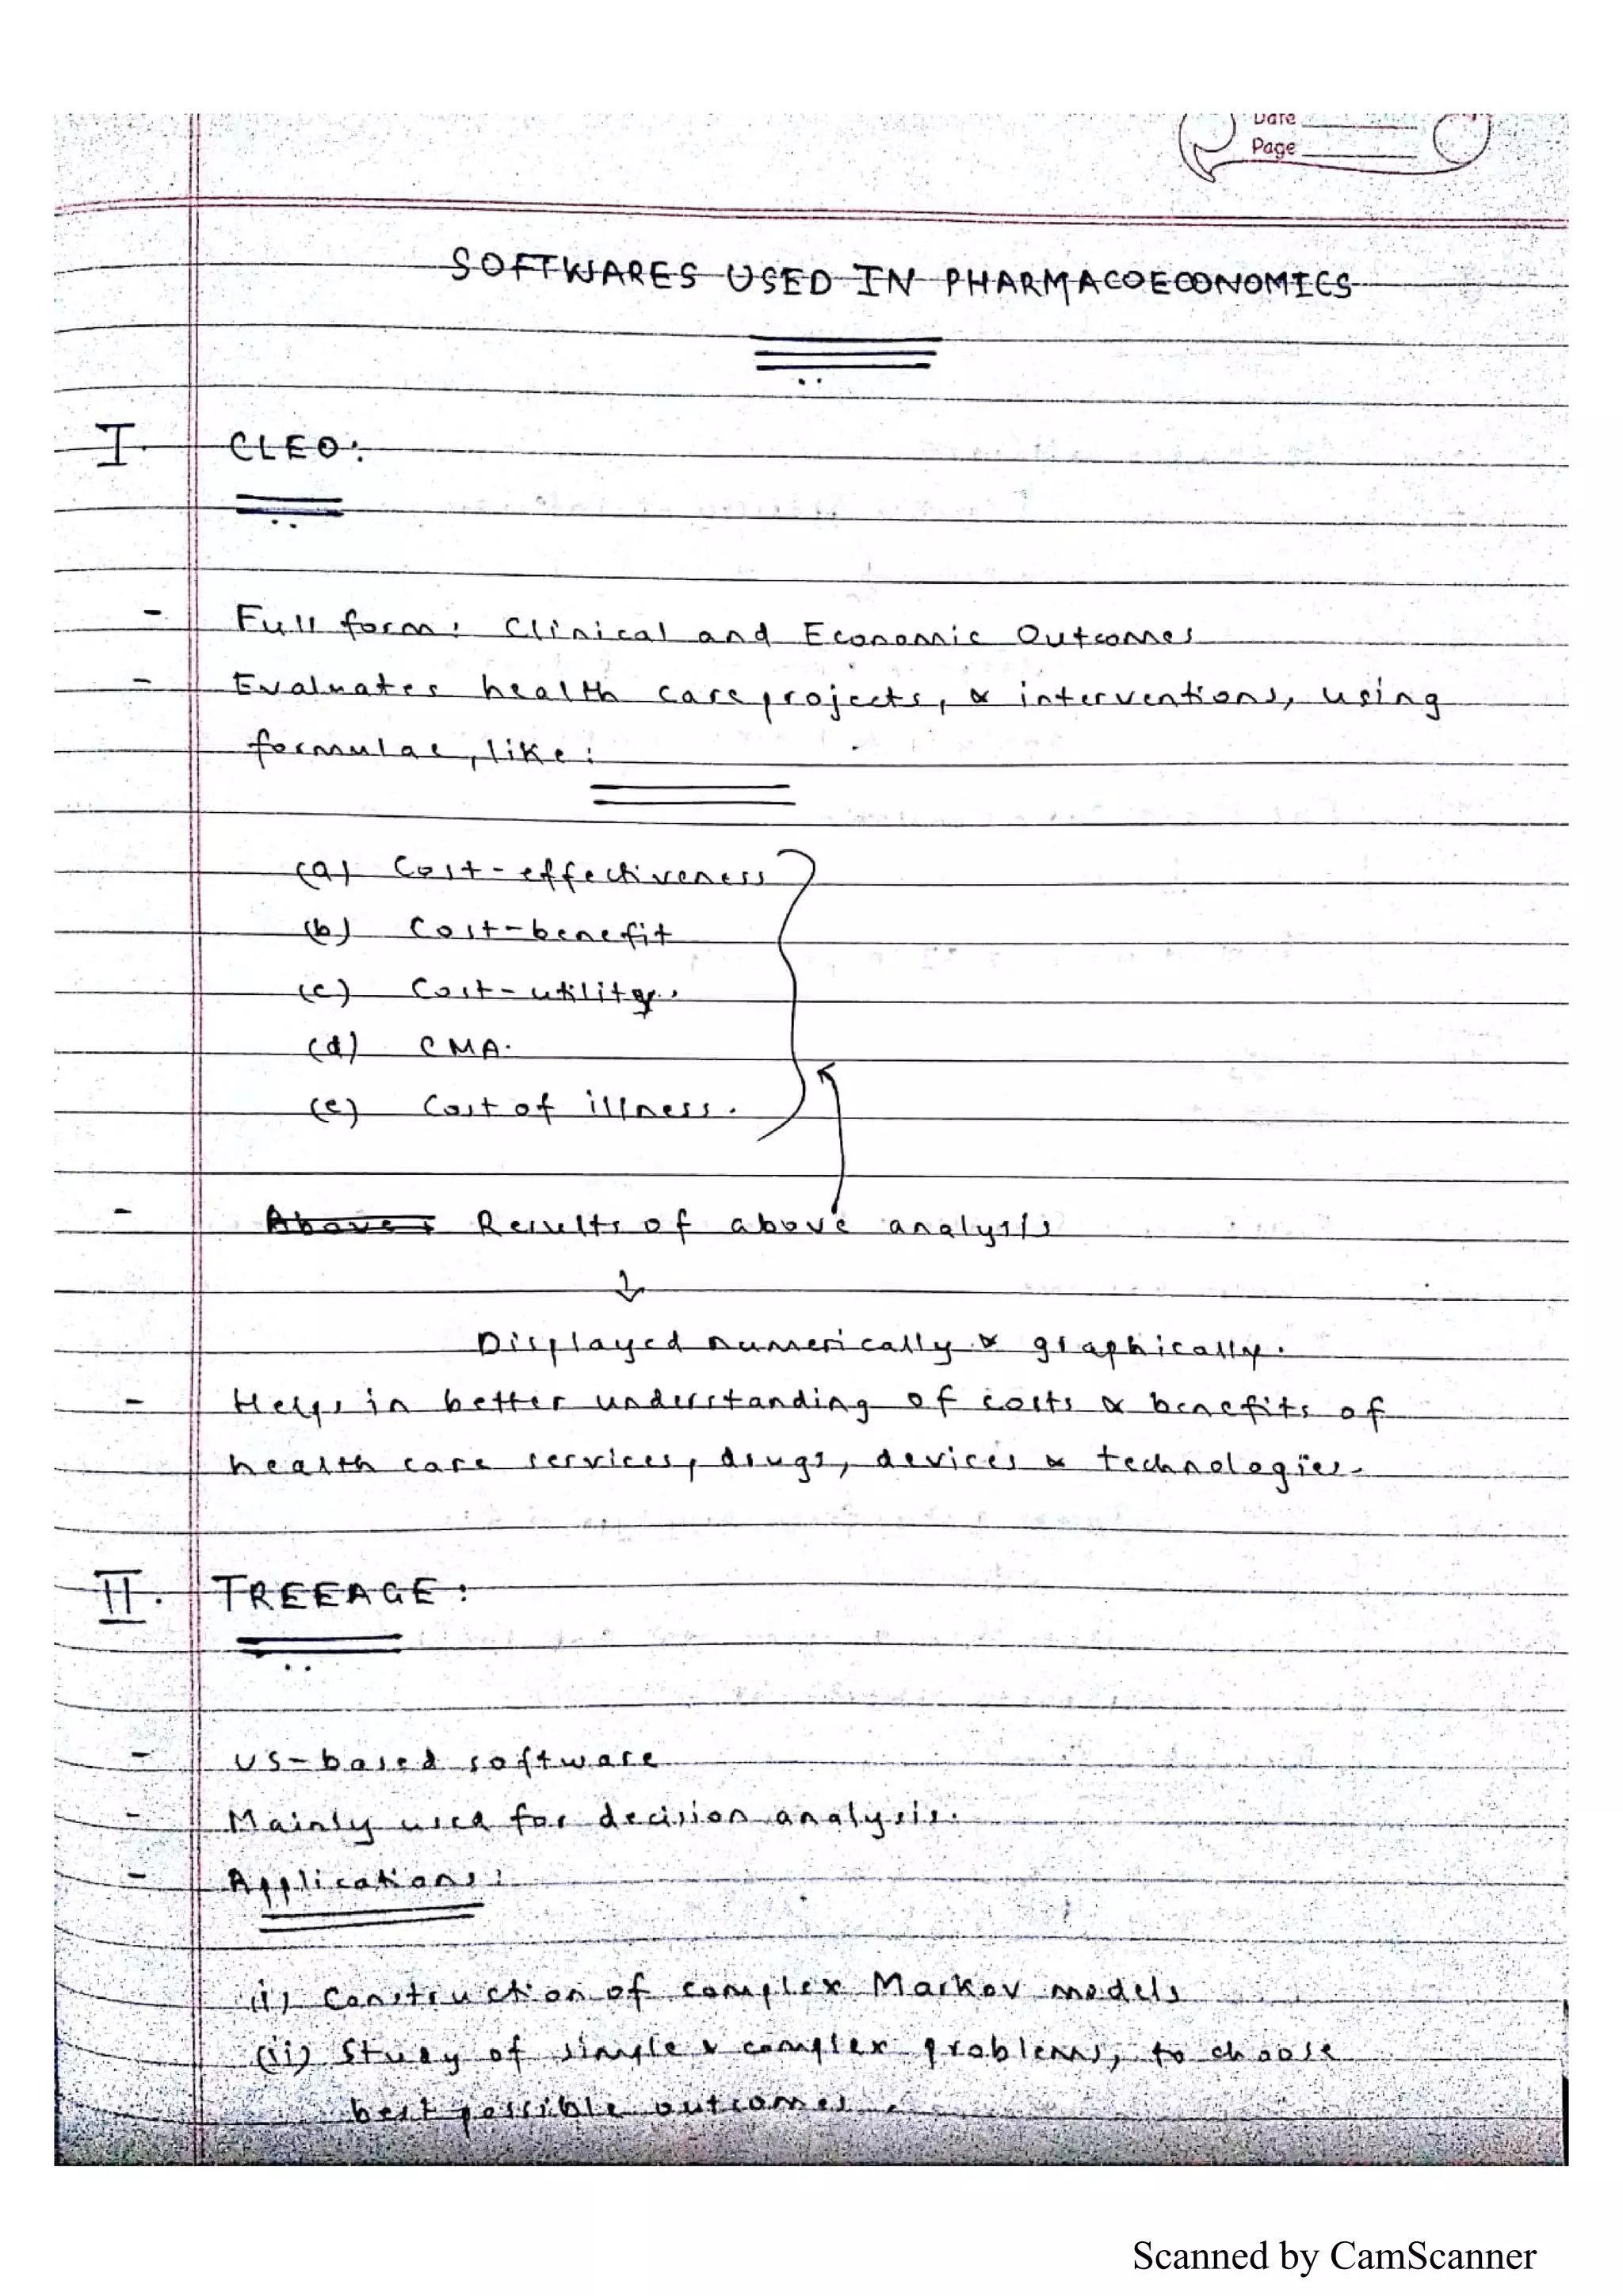 Date
Page
SOFTWARES USED IN PHARMACOECONOMICS
I. CLEO:
- Full form: Clinical and Economic Outcomes
- Evaluates health care projects, & interventions, using
formulae, like:
(a) Cost-effectiveness
(b) Cost-benefit
(c) Cost-utility.
(d) CMA.
(e) Cost of illness.
- Above Results of above analysis
↓
Displayed numerically & graphically.
- Helps in better understanding of costs & benefits of
health care services, drugs, devices & technologies.
II. TREEAGE:
- US-based software
- Mainly used for decision analysis.
- Applications:
(i) Construction of complex Markov models
(ii) Study of simple & complex problems, to choose
best possible outcomes.
Scanned by CamScanner